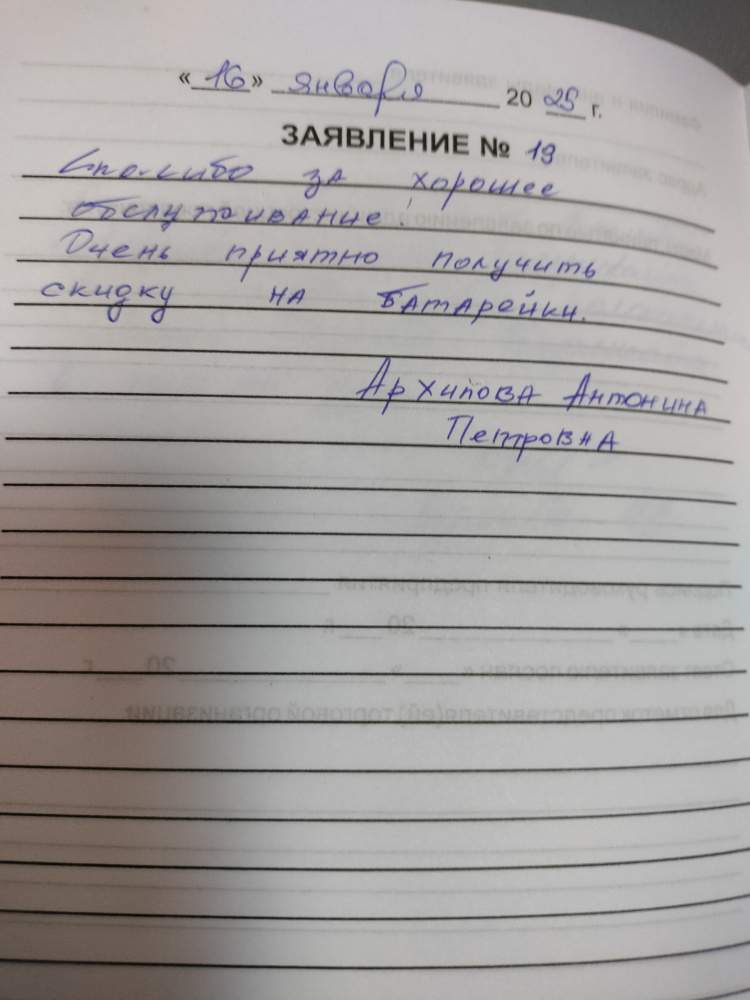 «16» января 2025 г.
ЗАЯВЛЕНИЕ № 19
Спасибо за хорошее
обслуживание!
Очень приятно получить
скидку на батарейки.
Архипова Антонина
Петровна